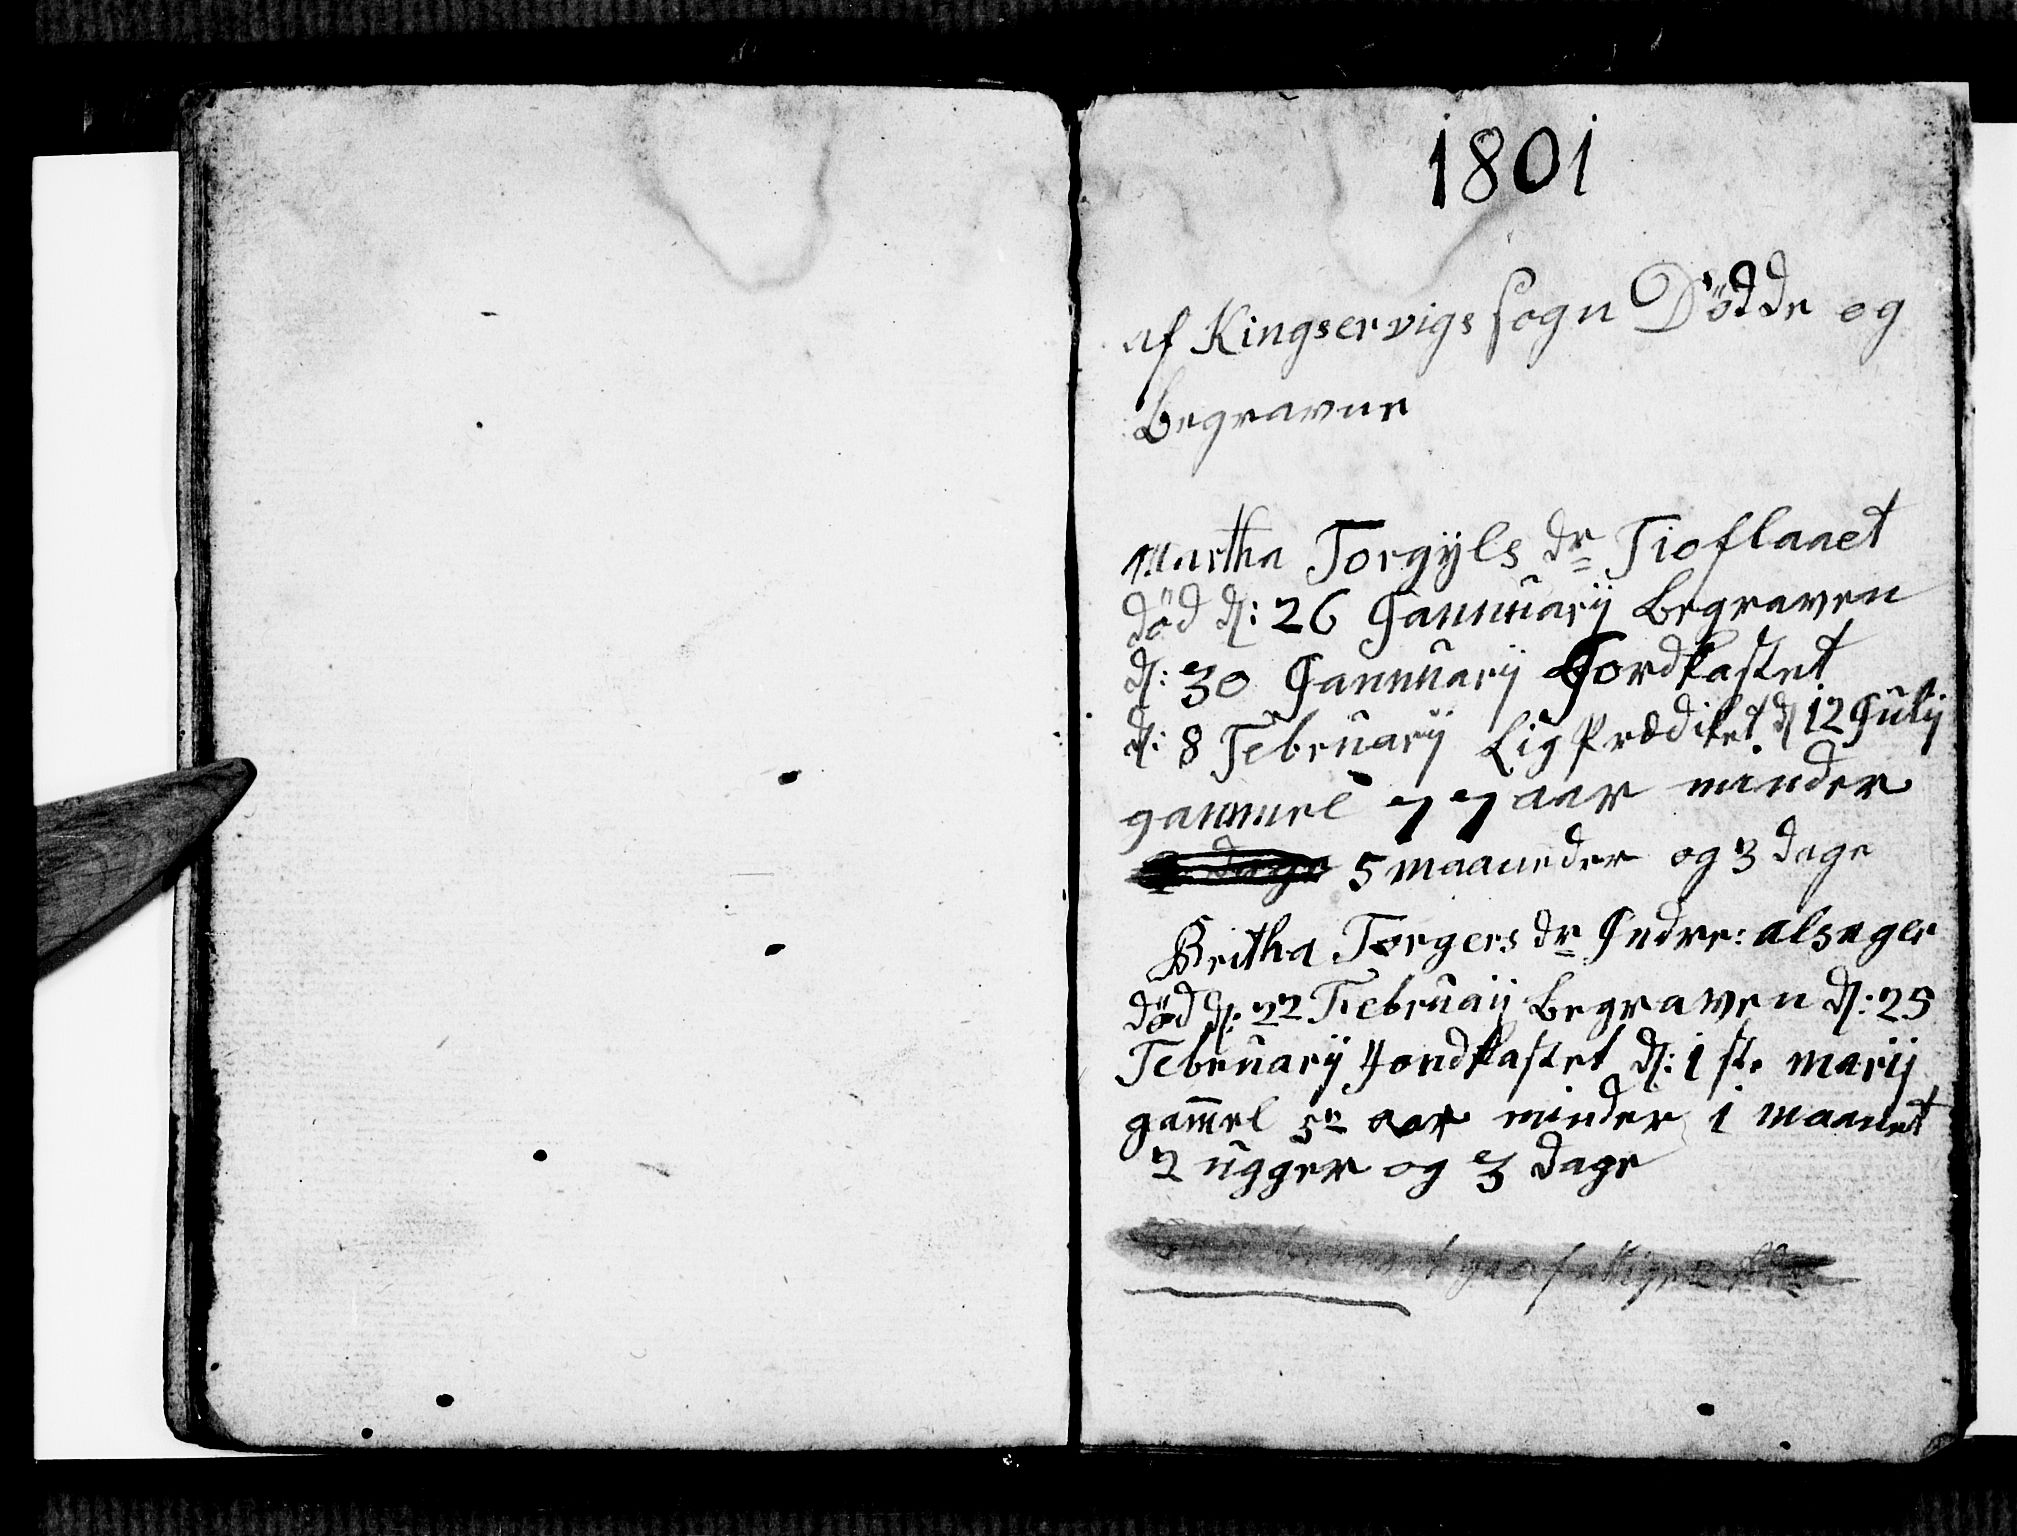 1801
af Kingservigs sogn Dödde og
begravne
Martha Torgÿls dr Tioflaaet
död d: 26 Jannuarÿ begraven
d: 30 Jannuarÿ Jordkastet
d: 8 Februarÿ Lig Prædiket d 12 Julÿ
gammel 77 aar minder
dage 5 maaneder og 3 dage
Britha Torgers dr Indre: alsager
död d: 22 Februaij begraven d: 25
Februarÿ Jordkastet d: 1 ste marij
gam̄el 52 aar minder 1 maanet
2 ugger og 3 dage